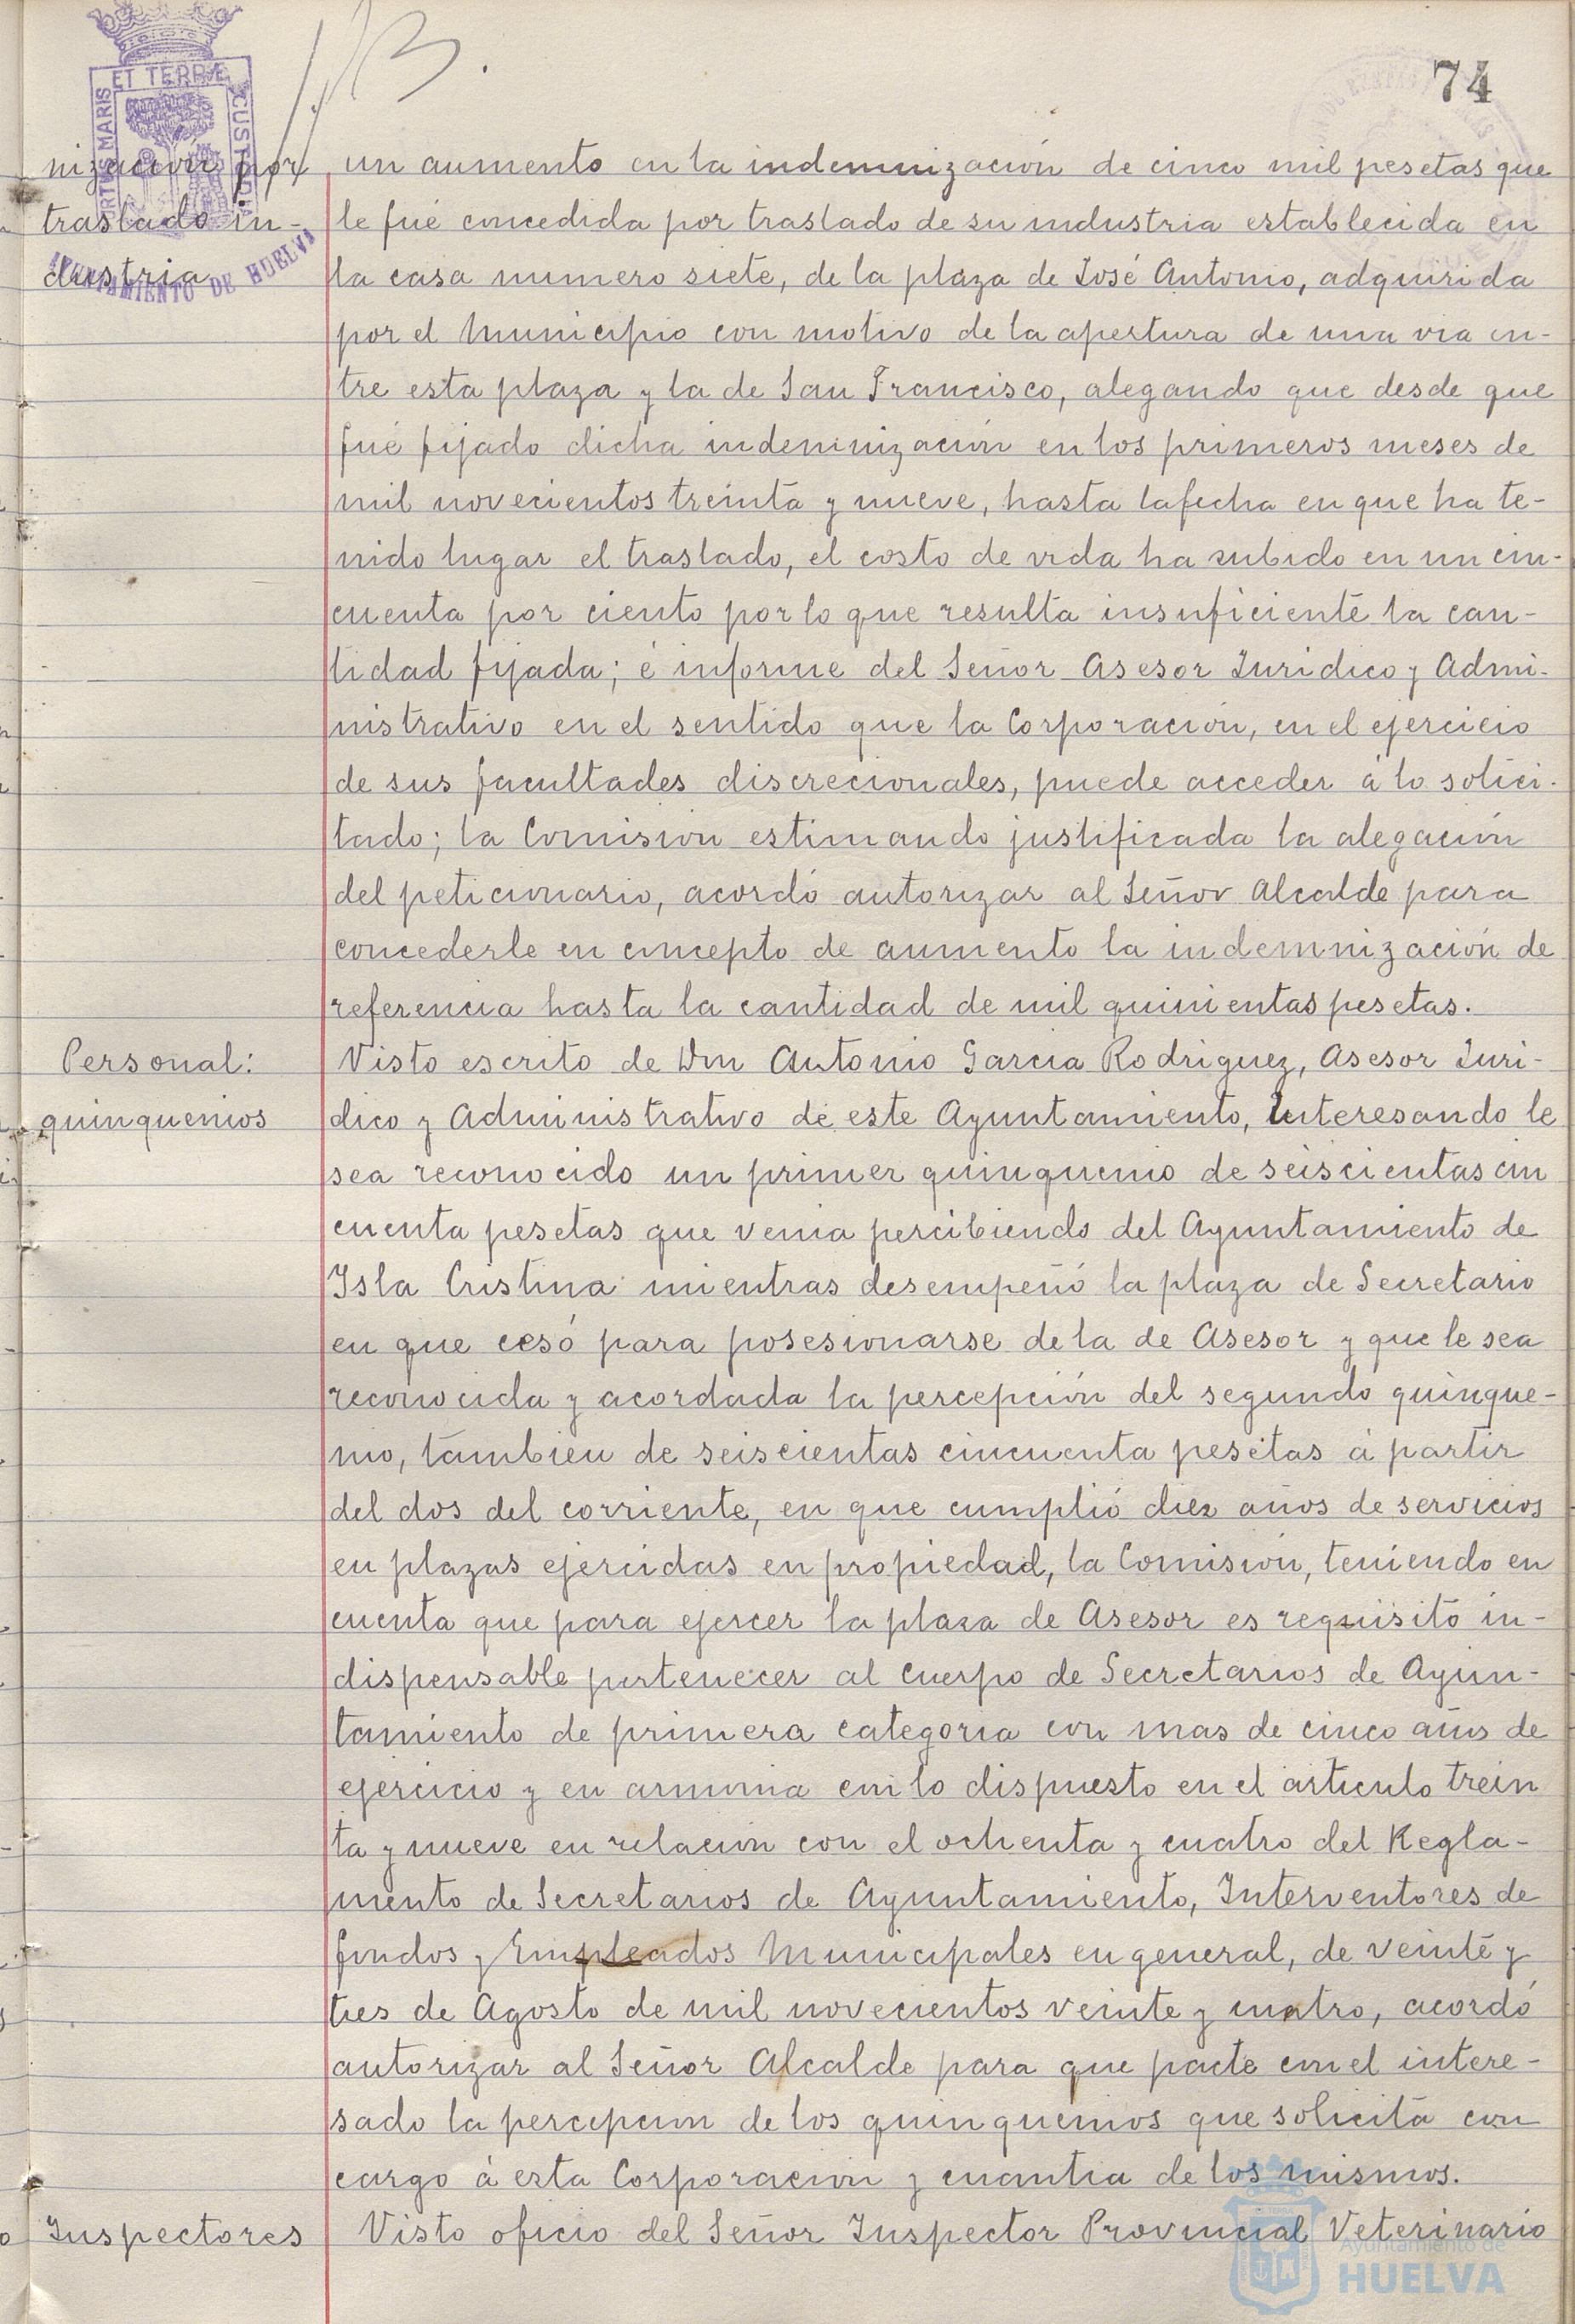 74
ET TERRÆ
AYUNTAMIENTO DE HUELVA
nización por
traslado in-
dustria
un aumento en la indemnización de cinco mil pesetas que
le fué concedida por traslado de su industria establecida en
la casa numero siete, de la plaza de José Antonio, adquirida
por el Municipio con motivo de la apertura de una via en-
tre esta plaza y la de San Francisco, alegando que desde que
fué fijado dicha indeminización en los primeros meses de
mil novecientos treinta y nueve, hasta la fecha en que ha te-
nido lugar el traslado, el costo de vida ha subido en un cin-
cuenta por ciento por lo que resulta insuficiente la can-
tidad fijada; é informe del Señor Asesor Juridico y Admi-
nistrativo en el sentido que la Corporación, en el ejercicio
de sus facultades discrecionales, puede acceder á lo solici-
tado; la Comision estimando justificada la alegación
del peticionario, acordó autorizar al Señor Alcalde para
concederle en concepto de aumento la indemnización de
referencia hasta la cantidad de mil quinientas pesetas.
Personal:
quinquenios
Visto escrito de Don Antonio Garcia Rodriguez, Asesor Juri-
dico y Administrativo de este Ayuntamiento, interesando le
sea reconocido un primer quinquenio de seiscientas cin
cuenta pesetas que venia percibiendo del Ayuntamiento de
Isla Cristina mientras desempeñó la plaza de Secretario
en que cesó para posesionarse de la de Asesor y que le sea
reconocida y acordada la percepción del segundo quinque-
nio, tambien de seiscientas cincuenta pesetas á partir
del dos del corriente, en que cumplió diez años de servicios
en plazas ejercidas en propiedad, la Comision, teniendo en
cuenta que para ejercer la plaza de Asesor es requisito in-
dispensable pertenecer al Cuerpo de Secretarios de Ayun-
tamiento de primera categoria con mas de cinco años de
ejercicio y en armonia con lo dispuesto en el articulo trein
ta y nueve en relacion con el ochenta y cuatro del Regla-
mento de Secretarios de Ayuntamiento, Interventores de
fondos y Empleados Municipales en general, de veinte y
tres de Agosto de mil novecientos veinte y cuatro, acordó
autorizar al Señor Alcalde para que pacte con el intere-
sado la percepcion de los quinquenios que solicita con
cargo á esta Corporacion y cuantia de los mismos.
Inspectores
Visto oficio del Señor Inspector Provincial Veterinario
Ayuntamiento de
HUELVA